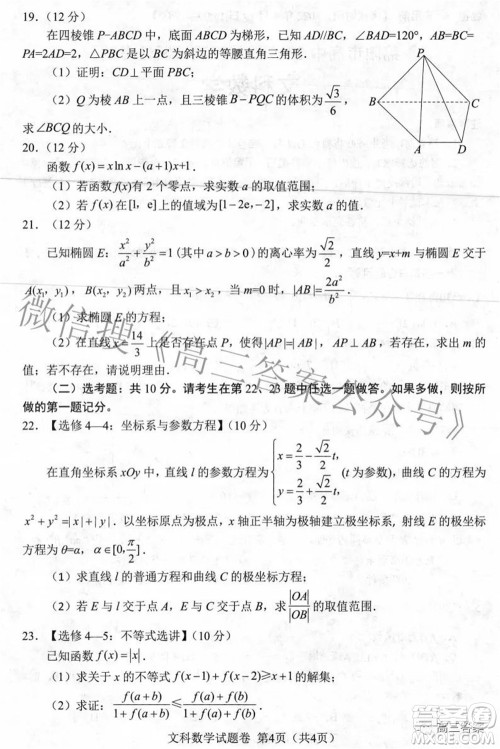 19.(12 分)
在四棱锥 P−ABCD 中，底面 ABCD 为梯形，已知 AD//BC，∠BAD=120°，AB=BC=
PA=2AD=2，△PBC 是以 BC 为斜边的等腰直角三角形．
（1）证明：CD⊥平面 PBC；
（2）Q 为棱 AB 上一点，且三棱锥 B−PQC 的体积为 √3/6，
求∠BCQ 的大小．
P
B
C
A
D
20.(12 分)
函数 f(x)=xlnx−(a+1)x+1．
（1）若函数 f(x)有 2 个零点，求实数 a 的取值范围；
（2）若 f(x)在[1，e]上的值域为[1−2e，−2]，求实数 a 的值．
21.(12 分)
已知椭圆 E：x²/a²+y²/b²=1(其中 a＞b＞0)的离心率为 √2/2，直线 y=x+m 与椭圆 E 交于
A(x₁，y₁)，B(x₂，y₂)两点，且 x₁＞x₂，当 m=0 时，|AB|=2a²/b²．
（1）求椭圆 E 的方程；
（2）在直线 x=14/3 上是否存在点 P，使得|AP|=|AB|，AP⊥AB，若存在，求出 m 的值；若
不存在，请说明理由．
（二）选考题：共 10 分。请考生在第 22、23 题中任选一题做答。如果多做，则按所
做的第一题记分。
22．【选修 4—4：坐标系与参数方程】(10 分)
在直角坐标系 xOy 中，直线 l 的参数方程为 {x=2/3−√2/2 t，y=2/3+√2/2 t (t 为参数)，曲线 C 的方程为
x²+y²=|x|+|y|．以坐标原点为极点，x 轴正半轴为极轴建立极坐标系，射线 E 的极坐标
方程为 θ=α，α∈[0，π/2]．
（1）求直线 l 的普通方程和曲线 C 的极坐标方程；
（2）若 E 与 l 交于点 A，E 与 C 交于点 B，求 |OA|/|OB| 的取值范围．
23．【选修 4—5：不等式选讲】(10 分)
已知函数 f(x)=|x|．
（1）求关于 x 的不等式 f(x−1)+f(x−2)≤3 的解集；
（2）求证：f(a+b)/(1+f(a+b))≤(f(a)+f(b))/(1+f(a)+f(b))．
文科数学试题卷 第4页（共4页）
微信搜《高三答案公众号》
高三答案